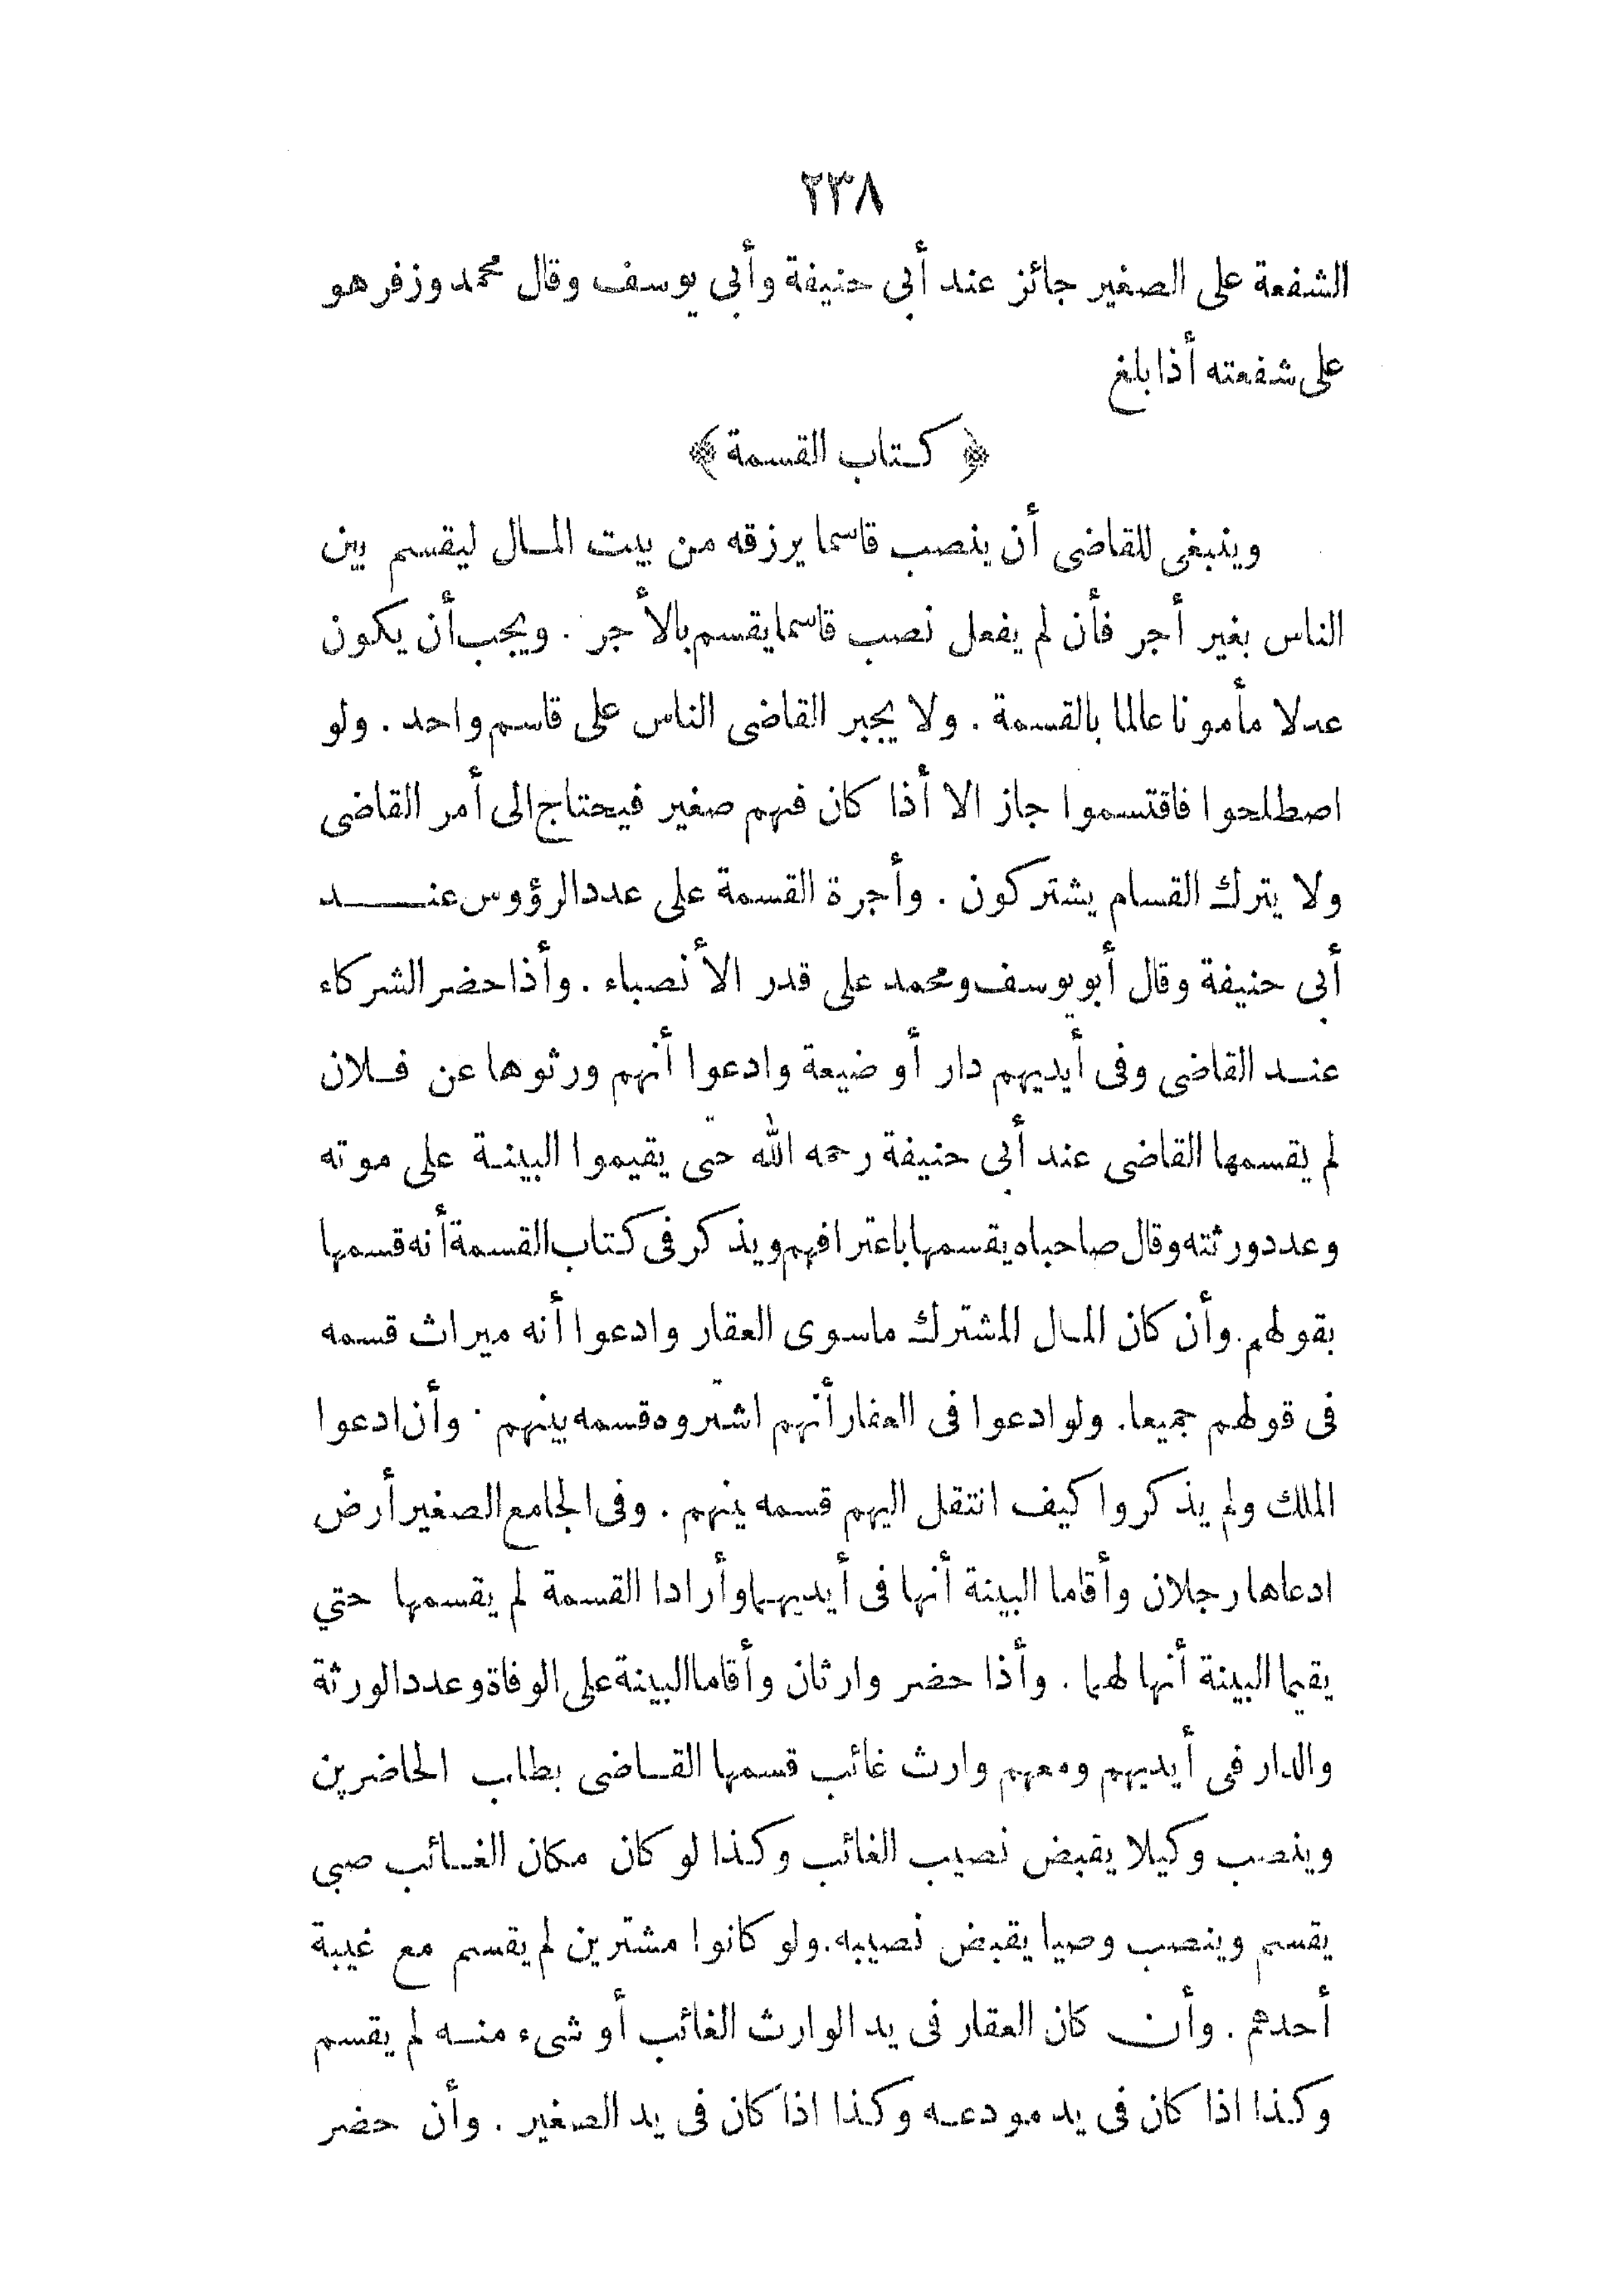 ٢٣٨
الشفعة على الصغير جائز عند أبى حنيفة وأبى يوسف وقال محمد وزفر هو
على شفعته أذا بلغ
﴿ كتاب القسمة ﴾
وينبغى للقاضى أن ينصب قاسما يرزقه من بيت المال ليقسم بين
الناس بغير أجر فأن لم يفعل نصب قاسما يقسم بالأجر . ويجب أن يكون
عدلا مأمونا عالما بالقسمة . ولا يجبر القاضى الناس على قاسم واحد . ولو
اصطلحوا فاقتسموا جاز الا أذا كان فيهم صغير فيحتاج الى أمر القاضى
ولا يترك القسام يشتركون . وأجرة القسمة على عدد الرؤوس عنـــد
أبى حنيفة وقال أبو يوسف ومحمد على قدر الأنصباء . وأذا حضر الشركاء
عنـد القاضى وفى أيديهم دار أو ضيعة وادعوا أنهم ورثوها عن فـلان
لم يقسمها القاضى عند أبى حنيفة رحمه الله حتى يقيموا البينـة على موته
وعدد ورثته وقال صاحباه يقسمها باعترافهم ويذكر فى كتاب القسمة أنه قسمها
بقولهم . وأن كان المـال المشترك ماسوى العقار وادعوا أنه ميراث قسمه
فى قولهم جميعا . ولو ادعوا فى العقار أنهم اشتروه قسمه بينهم . وأن ادعوا
الملك ولم يذكروا كيف انتقل اليهم قسمه بينهم . وفى الجامع الصغير أرض
ادعاها رجلان وأقاما البينة أنها فى أيديهما وأرادا القسمة لم يقسمها حتي
يقيما البينة أنها لهما . وأذا حضر وارثان وأقاما البينة على الوفاة وعدد الورثة
والدار فى أيديهم ومعهم وارث غائب قسمها القـاضى بطلب الحاضرين
وينصب وكيلا يقبض نصيب الغائب وكذا لو كان مكان الغـائب صبى
يقسم وينصب وصيا يقبض نصيبه . ولو كانوا مشترين لم يقسم مع غيبة
أحدهم . وأن كان العقار فى يد الوارث الغائب أو شىء منـه لم يقسم
وكذا اذا كان فى يد مودعـه وكذا اذا كان فى يد الصغير . وأن حضر